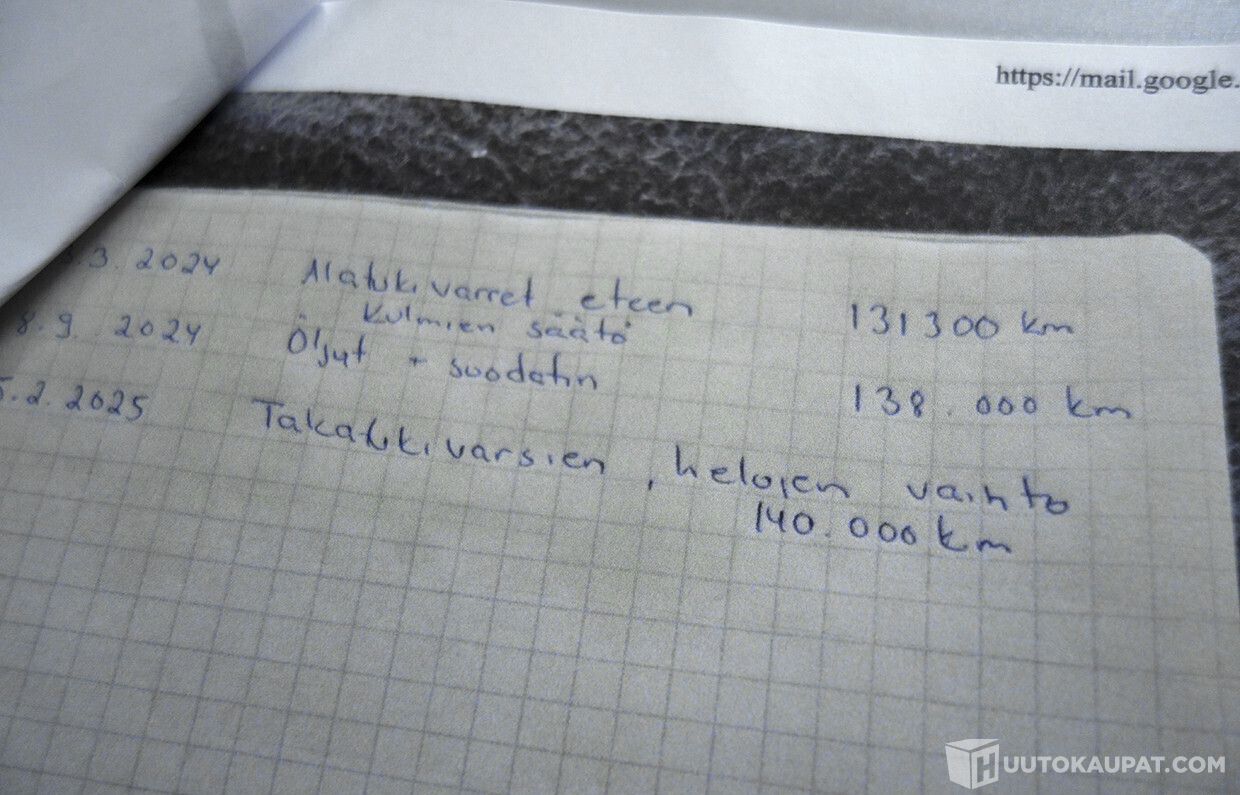 https://mail.google.
.3. 2024 Alatukivarret eteen 131300 km
Kulmien säätö
8.9. 2024 Öljyt + suodatin 138.000 km
5.2.2025 Takatukivarsien, helojen vaihto
140.000 km
HUUTOKAUPAT.COM